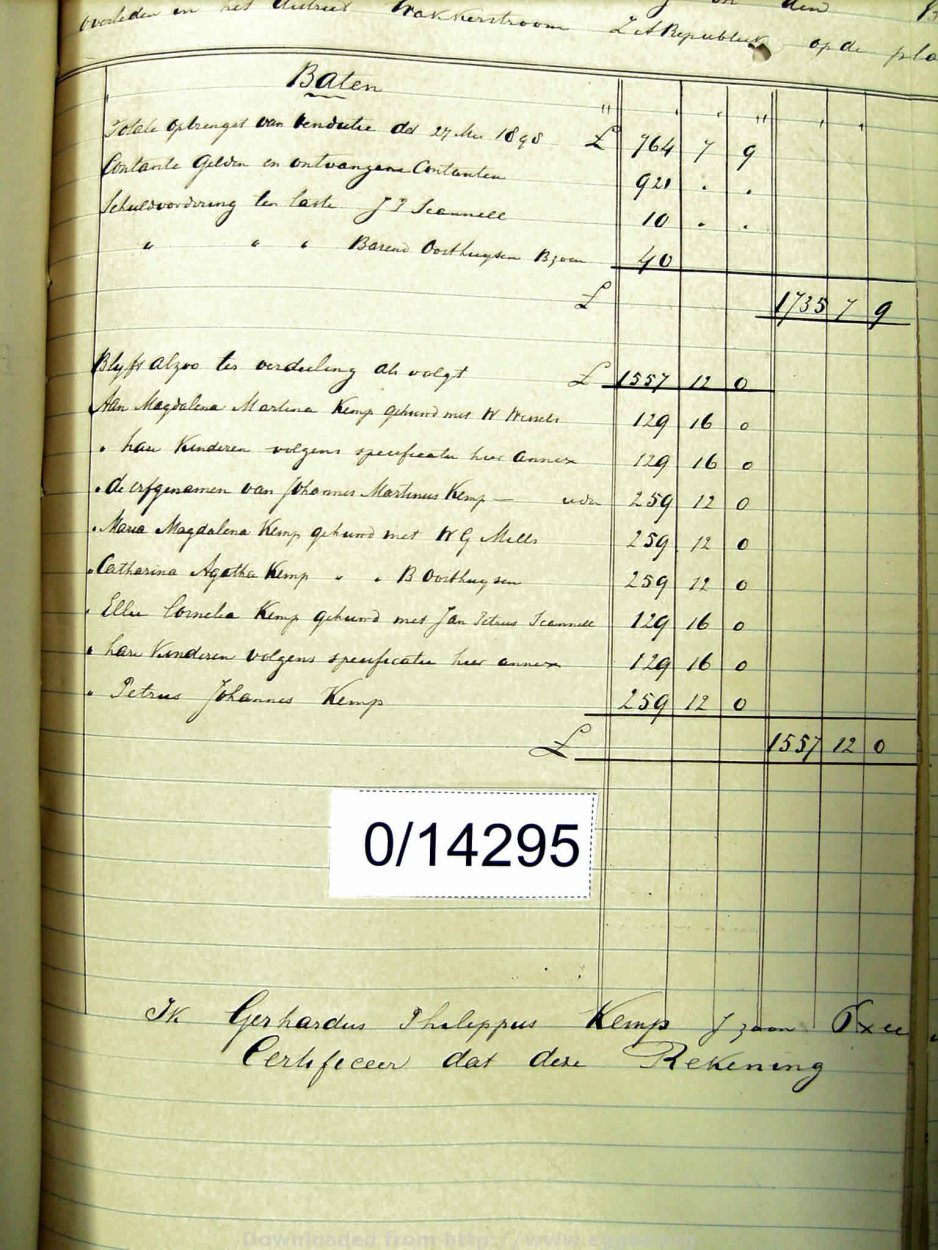 overleden in het district Wakkerstroom Z A Republiek op de pla
Baten
Totale opbrengst van Vendutie dd 27 Mei 1898 £ 764 7 9
Contante Gelden en ontvangene Contanten 921 . .
Schuldvordering ten laste J P Scannell 10 . .
" " " Barend Oosthuysen Bzoon 40
£ 1735 7 9
Blyft alzoo ter verdeeling als volgt £ 1557 12 0
Aan Magdalena Martina Kemp gehuwd met W Wessels 129 16 0
" hare Kinderen volgens specificatie hier annex 129 16 0
" de erfgenamen van Johannes Martinus Kemp — 259 12 0
" Maria Magdalena Kemp gehuwd met W G Mills 259 12 0
" Catharina Agatha Kemp " " B Oosthuysen 259 12 0
" Ellie Cornelia Kemp gehuwd met Jan Petrus Scannell 129 16 0
" hare Kinderen volgens specificatie hier annex 129 16 0
" Petrus Johannes Kemp 259 12 0
£ 1557 12 0
0/14295
Ik Gerhardus Philippus Kemp J zoon Exe
Certificeer dat deze Rekening
Downloaded from http://www.eggsa.org